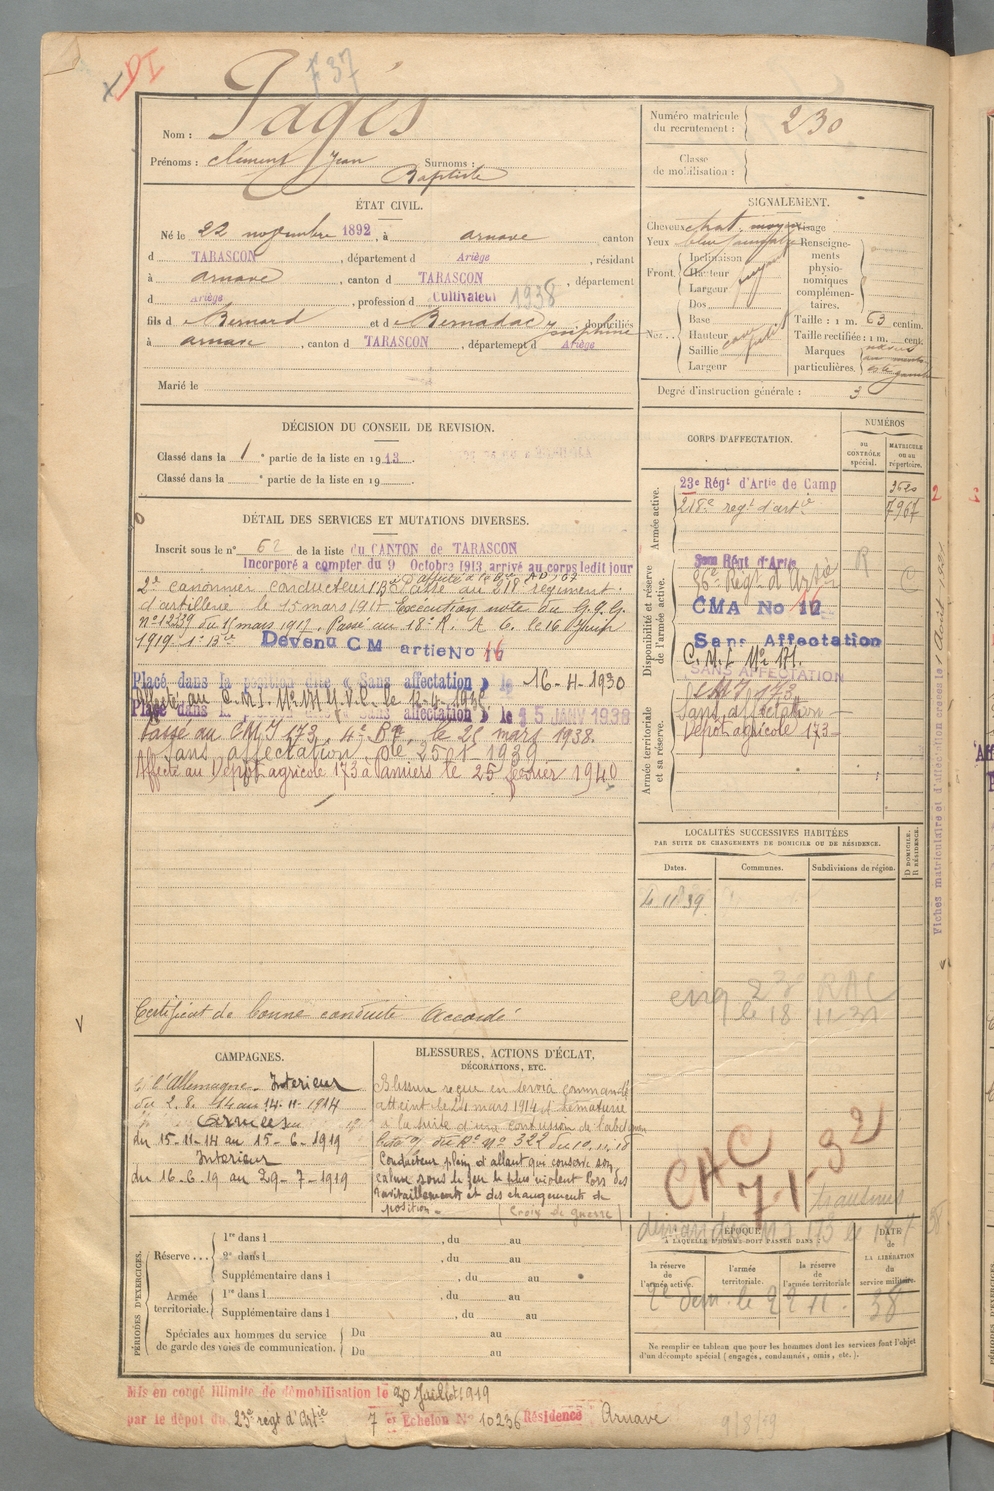 DI
F 37
Nom : Pagès
Prénoms : Clément Jean Surnoms :
Baptiste
Numéro matricule
du recrutement : 230
Classe
de mobilisation :
ÉTAT CIVIL.
Né le 22 novembre 1892, à arnave, canton
d TARASCON, département d Ariège, résidant
à arnave, canton de TARASCON, département
d Ariège, profession d Cultivateur 1938
fils d e Bernard et d e Bernadac Joséphine domiciliés
à arnave, canton d TARASCON, département d Ariège
Marié le
SIGNALEMENT.
Cheveux chat. moyen Visage
Yeux bleu
Front. Inclinaison
Hauteur
Largeur
fuyant
Nez.. Dos
Base
Hauteur
Saillie
Largeur
Renseigne-
ments
physio-
nomiques
complémen-
taires.
Taille : 1 m. 63 centim.
Taille rectifiée : 1 m. cent.
Marques
particulières.
Degré d'instruction générale : 3
DÉCISION DU CONSEIL DE REVISION.
Classé dans la 1e partie de la liste en 1913.
Classé dans la e partie de la liste en 19
CORPS D'AFFECTATION.
NUMÉROS
au
CONTRÔLE
spécial.
MATRICULE
ou au
répertoire.
Armée active.
23e Régt d'Artie de Camp
218e regt d'artie 7967
Disponibilité et réserve
de l'armée active.
86e Régt d'Artie R
CMA No 16
Sans Affectation
C.M.I. No 171.
SANS AFFECTATION
Armée territoriale
et sa réserve.
CMI 173
Sans affectation
Dépôt agricole 173
DÉTAIL DES SERVICES ET MUTATIONS DIVERSES.
Inscrit sous le n° 62 de la liste du CANTON de TARASCON
Incorporé a compter du 9 Octobre 1913 arrivé au corps ledit jour
2e canonnier conducteur Passé au 218e regiment
d'artillerie le 15 mars 1917 Exécution note du G.Q.G.
n° 12339 du 11 mars 1917. Passé au 18e R. A C. le 16 Juin
1919 Devenu CM artie No 16
Placé dans la position dite « Sans affectation » le 16-4-1930
Affecté au C.M.I. No 171
Placé dans la Sans affectation » le 15 JANV 1938
Passé au CMI 173, 4e Bie, le 25 mars 1938.
Sans affectation
Affecté au Dépôt agricole 173 à Pamiers le 25 février 1940
Certificat de bonne conduite Accordé
Fiches matriculaire et d'affectation créées le 1 Août
LOCALITÉS SUCCESSIVES HABITÉES
PAR SUITE DE CHANGEMENTS DE DOMICILE OU DE RÉSIDENCE.
Dates.
Communes.
Subdivisions de région.
D DOMICILE.
R RÉSIDENCE.
4 11 39
le 18 11 31
CAC
7-1-32
CAMPAGNES.
C. l'Allemagne. Interieur
du 2. 8. 14 au 14-11-1914
Armées
du 15-11-14 au 15-6-1919
Interieur
du 16-6-19 au 29-7-1919
BLESSURES, ACTIONS D'ÉCLAT,
DÉCORATIONS, ETC.
Blessure reçue en service commandé
atteint le 24 mars 1914 d'hématurie
à la suite d'une contusion de l'abdomen
Cité o/ du Rt No 322 du 10.11.18
Conducteur plein d'allant qui conserve son
calme sous le feu le plus violent lors des
ravitaillements et des changements de
position. - (Croix de guerre)
PÉRIODES D'EXERCICES.
Réserve... 1re dans l , du au
2e dans l , du au
Supplémentaire dans l , du au
Armée
territoriale. 1re dans l , du au
Supplémentaire dans l , du au
Spéciales aux hommes du service
de garde des voies de communication. Du au
Du au
ÉPOQUE
À LAQUELLE L'HOMME DOIT PASSER DANS :
la réserve
de l'armée active.
l'armée
territoriale.
la réserve
de l'armée territoriale
DATE
de
LA LIBÉRATION
du
service militaire.
Ne remplir ce tableau que pour les hommes dont les services font l'objet
d'un décompte spécial (engagés, condamnés, omis, etc.).
Mis en congé illimité de démobilisation le 30 Juillet 1919
par le dépôt du 23e regt d'Artie 7 e Echelon No 10236 Résidence Arnave